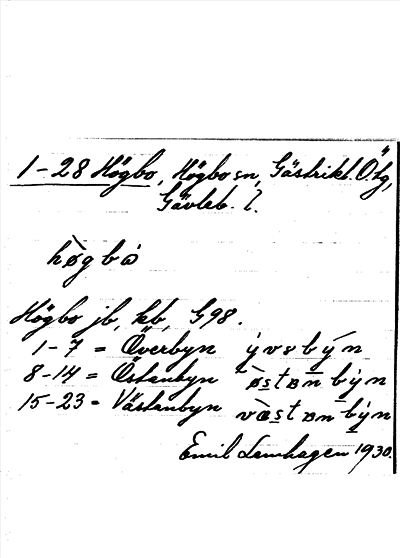 1-28 Högbo, Högbo sn, Gästrikl. Ö. tg,
Gävleb. l.
hø̀gbó
Högbo jb, kb, G98.
1-7 = Överbyn ỳvɘbýn
8-14 = Östanbyn ø̀stɘnbýn
15-23 = Västanbyn væ̀stɘnbýn
Emil Lamhagen 1930.